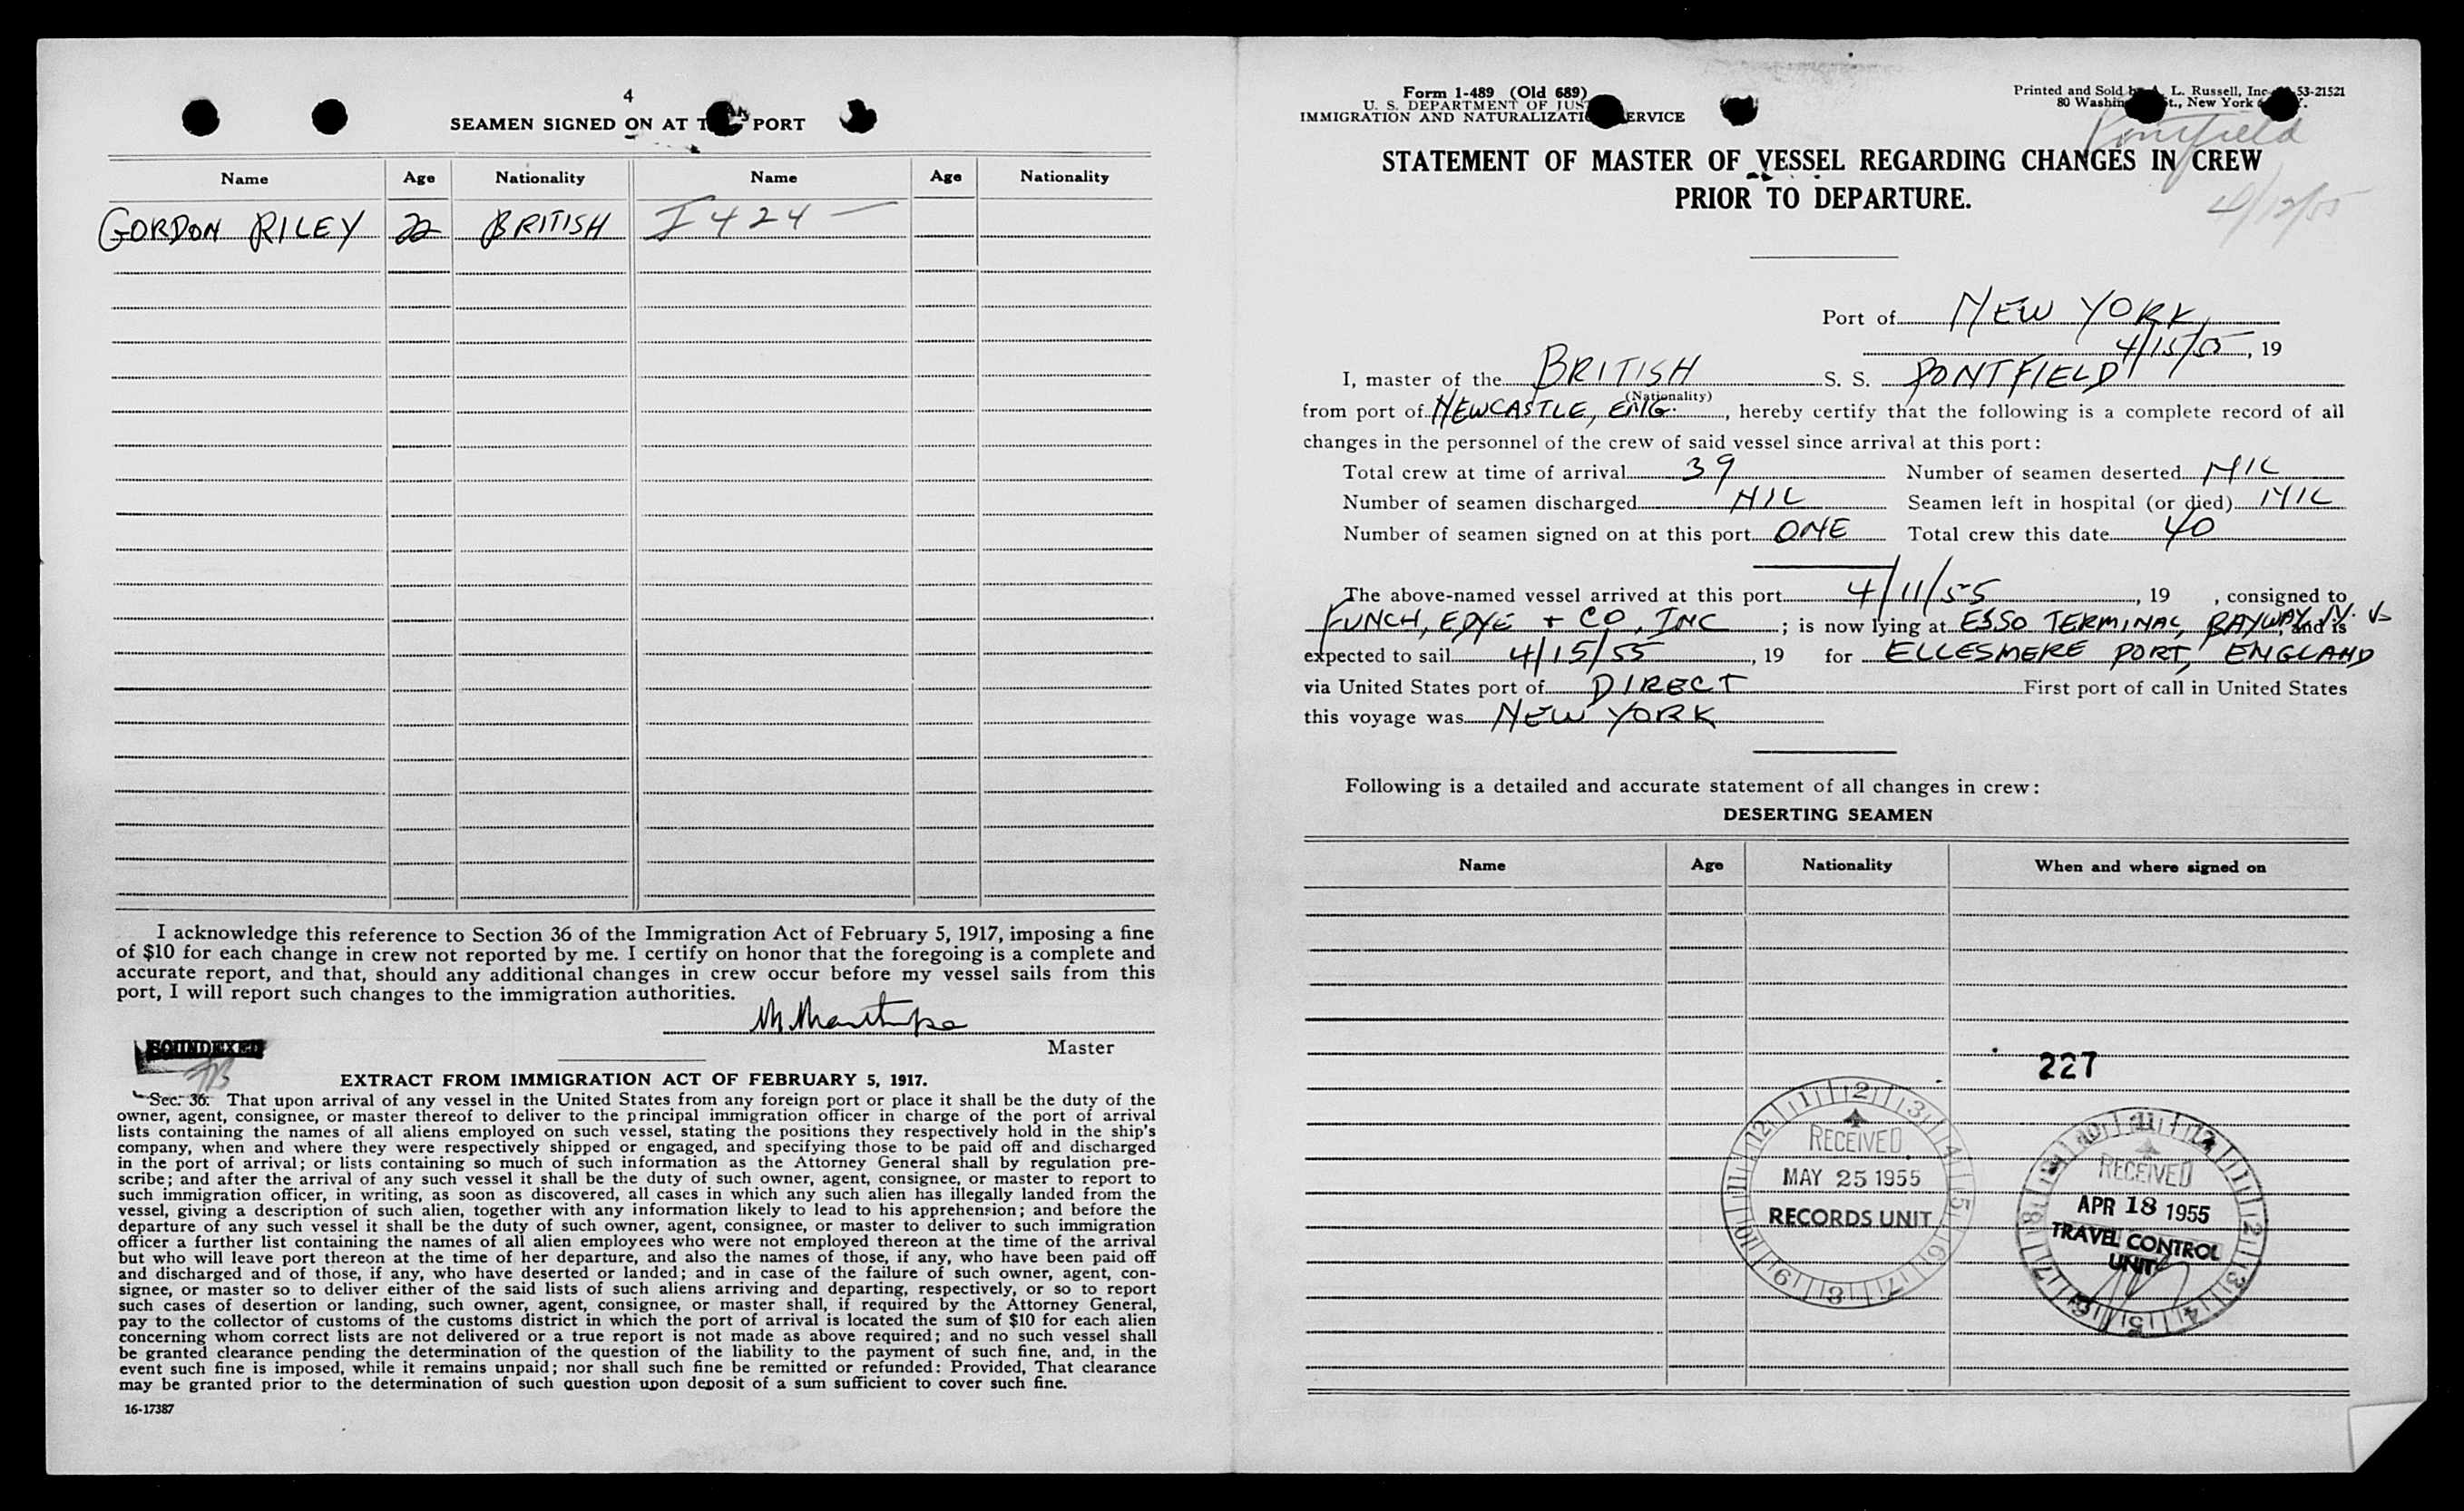 4
SEAMEN SIGNED ON AT PORT
Name Age Nationality Name Age Nationality
GORDON RILEY 22 BRITISH I 424 —
I acknowledge this reference to Section 36 of the Immigration Act of February 5, 1917, imposing a fine
of $10 for each change in crew not reported by me. I certify on honor that the foregoing is a complete and
accurate report, and that, should any additional changes in crew occur before my vessel sails from this
port, I will report such changes to the immigration authorities.
Master
SOUNDEXED
EXTRACT FROM IMMIGRATION ACT OF FEBRUARY 5, 1917.
Sec. 36. That upon arrival of any vessel in the United States from any foreign port or place it shall be the duty of the
owner, agent, consignee, or master thereof to deliver to the principal immigration officer in charge of the port of arrival
lists containing the names of all aliens employed on such vessel, stating the positions they respectively hold in the ship's
company, when and where they were respectively shipped or engaged, and specifying those to be paid off and discharged
in the port of arrival; or lists containing so much of such information as the Attorney General shall by regulation pre-
scribe; and after the arrival of any such vessel it shall be the duty of such owner, agent, consignee, or master to report to
such immigration officer, in writing, as soon as discovered, all cases in which any such alien has illegally landed from the
vessel, giving a description of such alien, together with any information likely to lead to his apprehension; and before the
departure of any such vessel it shall be the duty of such owner, agent, consignee, or master to deliver to such immigration
officer a further list containing the names of all alien employees who were not employed thereon at the time of the arrival
but who will leave port thereon at the time of her departure, and also the names of those, if any, who have been paid off
and discharged and of those, if any, who have deserted or landed; and in case of the failure of such owner, agent, con-
signee, or master so to deliver either of the said lists of such aliens arriving and departing, respectively, or so to report
such cases of desertion or landing, such owner, agent, consignee, or master shall, if required by the Attorney General,
pay to the collector of customs of the customs district in which the port of arrival is located the sum of $10 for each alien
concerning whom correct lists are not delivered or a true report is not made as above required; and no such vessel shall
be granted clearance pending the determination of the question of the liability to the payment of such fine, and, in the
event such fine is imposed, while it remains unpaid; nor shall such fine be remitted or refunded: Provided, That clearance
may be granted prior to the determination of such question upon deposit of a sum sufficient to cover such fine.
16-17387
Form 1-489 (Old 689)
U. S. DEPARTMENT OF
IMMIGRATION AND
Printed and Sold L. Russell, Inc. 53-21521
80 New York
Pontfield
STATEMENT OF MASTER OF VESSEL REGARDING CHANGES IN CREW
PRIOR TO DEPARTURE.
4/12/55
Port of NEW YORK
4/15/55, 19
I, master of the BRITISH S. S. PONTFIELD
(Nationality)
from port of NEWCASTLE, ENG., hereby certify that the following is a complete record of all
changes in the personnel of the crew of said vessel since arrival at this port:
Total crew at time of arrival 39 Number of seamen deserted NIL
Number of seamen discharged NIL Seamen left in hospital (or died) NIL
Number of seamen signed on at this port ONE Total crew this date 40
The above-named vessel arrived at this port 4/11/55, 19 , consigned to
FUNCH, EDYE + CO, INC ; is now lying at ESSO TERMINAL, BAYWAY, and is
expected to sail 4/15/55, 19 for ELLESMERE PORT, ENGLAND
via United States port of DIRECT First port of call in United States
this voyage was NEW YORK
Following is a detailed and accurate statement of all changes in crew:
DESERTING SEAMEN
Name Age Nationality When and where signed on
227
12 1 2 3 4 5 6 7 8 9 10 11
RECEIVED
MAY 25 1955
RECORDS UNIT
RECEIVED
APR 18 1955
TRAVEL CONTROL
UNIT